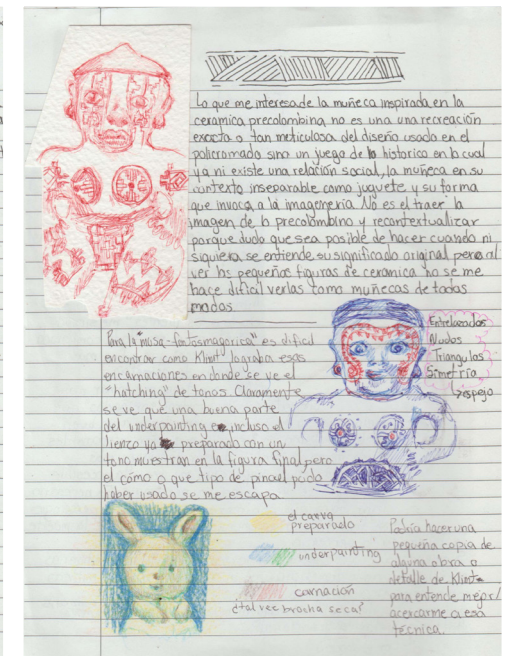 Lo que me interesa de la muñeca inspirada en la
ceramica precolombina no es una una recreación
exacta o tan meticulosa del diseño usado en el
policromado sino un juego de lo historico en lo cual
ya ni existe una relación social, la muñeca en su
contexto inseparable como juguete y su forma
que invoca a la imageneria. No es el traer la
imagen de lo precolombino y recontextualizar
porque dudo que sea posible de hacer cuando ni
siquiera se entiende su significado original pero al
ver las pequeñas figuras de ceramica no se me
hace dificil verlas como muñecas de todas
modos.
Para la "musa-fantasmagorica" es dificil
encontrar como Klimt lograba esas
encarnaciones en donde se ve el
"hatching" de tonos. Claramente
se ve que una buena parte
del underpainting e incluso el
lienzo ya preparado con un
tono muestran en la figura final pero
el cómo o que tipo de pincel pudo
haber usado se me escapa.
Entrelazados
Nudos
Triangulos
Simetría
espejo
el canva
preparado
underpainting
carnación
¿tal vez brocha seca?
Podria hacer una
pequeña copia de
alguna obra o
detalle de Klimt
para entender mejor/
acercarme a esa
técnica.